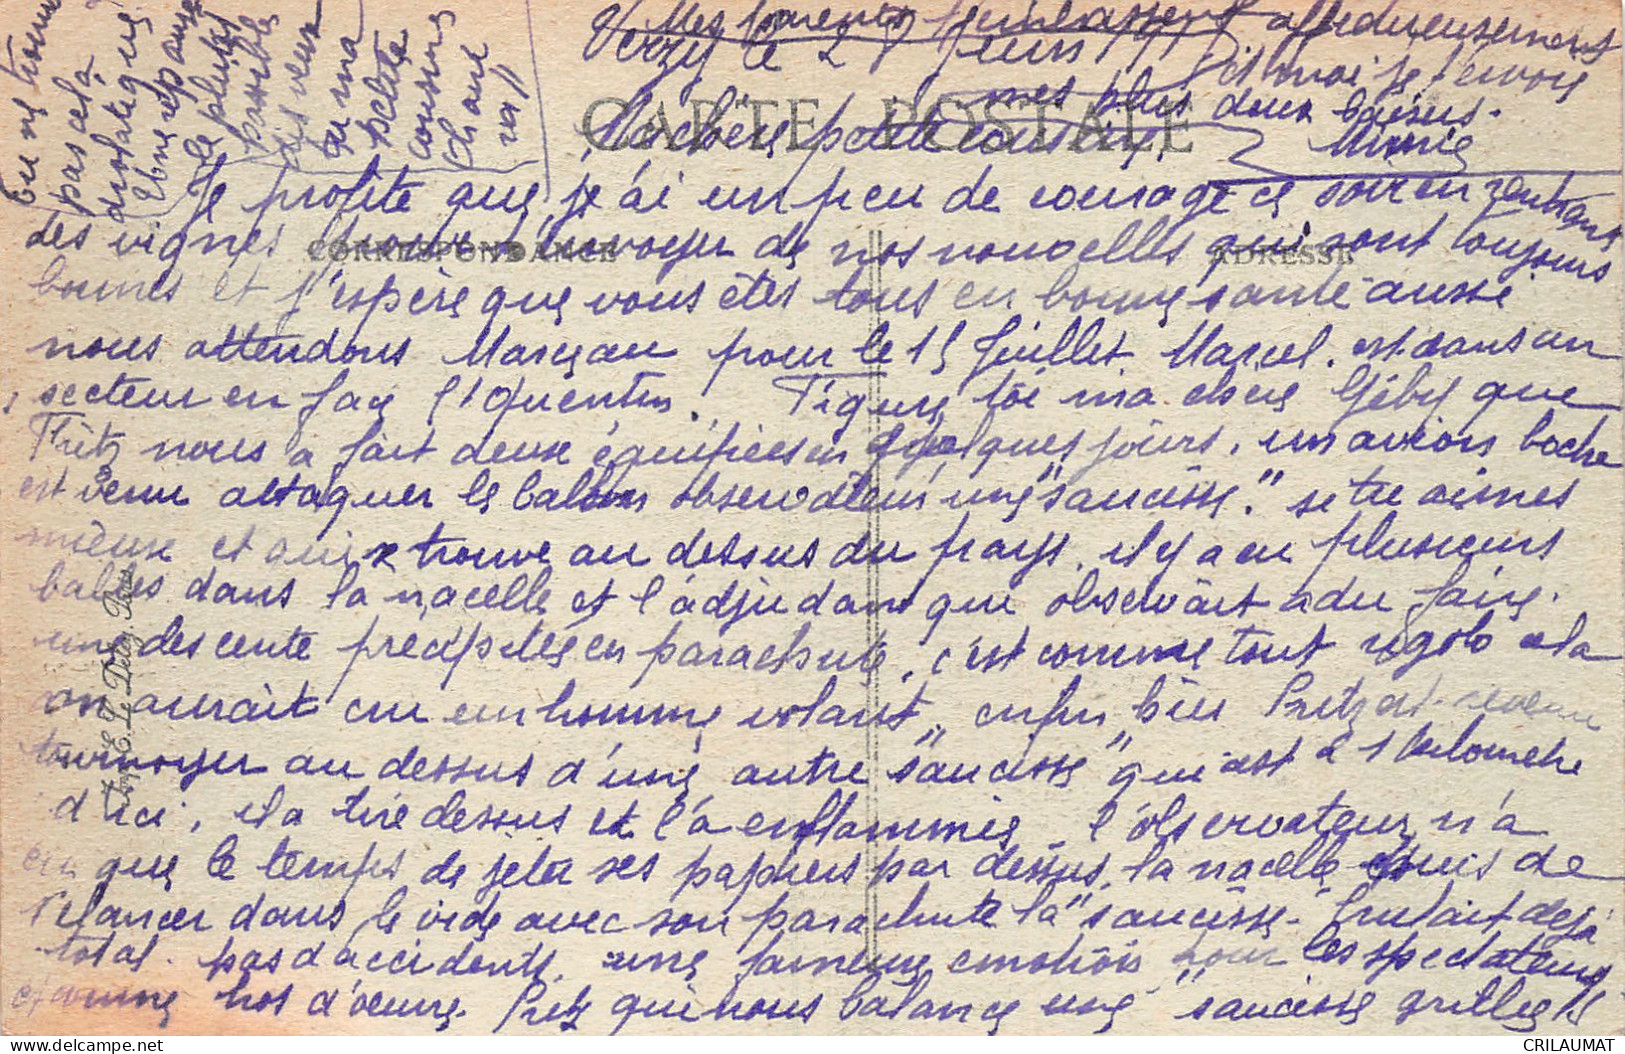 Verzy le 28 Juin 1917
CARTE POSTALE
Ma chère petite cousine,
Je profite que j'ai un peu de courage ce soir en rentrant
des vignes pour t'envoyer de nos nouvelles qui sont toujours
CORRESPONDANCE
ADRESSE
bonnes et j'espère que vous êtes tous en bonne santé aussi
nous attendons Marceau pour le 15 Juillet Marcel. est dans un
secteur en face St Quentin. Figure toi ma chère Géby que
Fritz nous a fait deux équipées en quelques jours, un avion boche
est venu attaquer le ballon observateur, une "saucisse" si tu aimes
mieux et qui se trouve au dessus du pays, il y a eu plusieurs
balles dans la nacelle et l'adjudant qui observait a du faire
une descente précipitée en parachute, c'est comme tout rigolo cela
on aurait cru un homme volant, enfin, bien Fritz est revenu
tournoyer au dessus d'une autre "saucisse" qui est à 1 kilomètre
d'ici, il a tiré dessus et l'a enflammée, l'observateur n'a
eu que le temps de jeter ses papiers par dessus la nacelle puis de
s'élancer dans le vide avec son parachute la "saucisse" brulait déjà
total. pas d'accidents, une fameuse émotion pour les spectateurs
et comme hors d'oeuvre. Fritz qui nous balance une "saucisse grillée"
Mes parents t'embrassent affectueusement
et moi je t'envoie
mes plus doux baisers.
Mimie
Tu ne trouves
pas cela
drolatique
le plus tôt
possible
je veux
ma
petite
cousine
va !!
Imp. E. Le Deley, Paris
CRILAUMAT